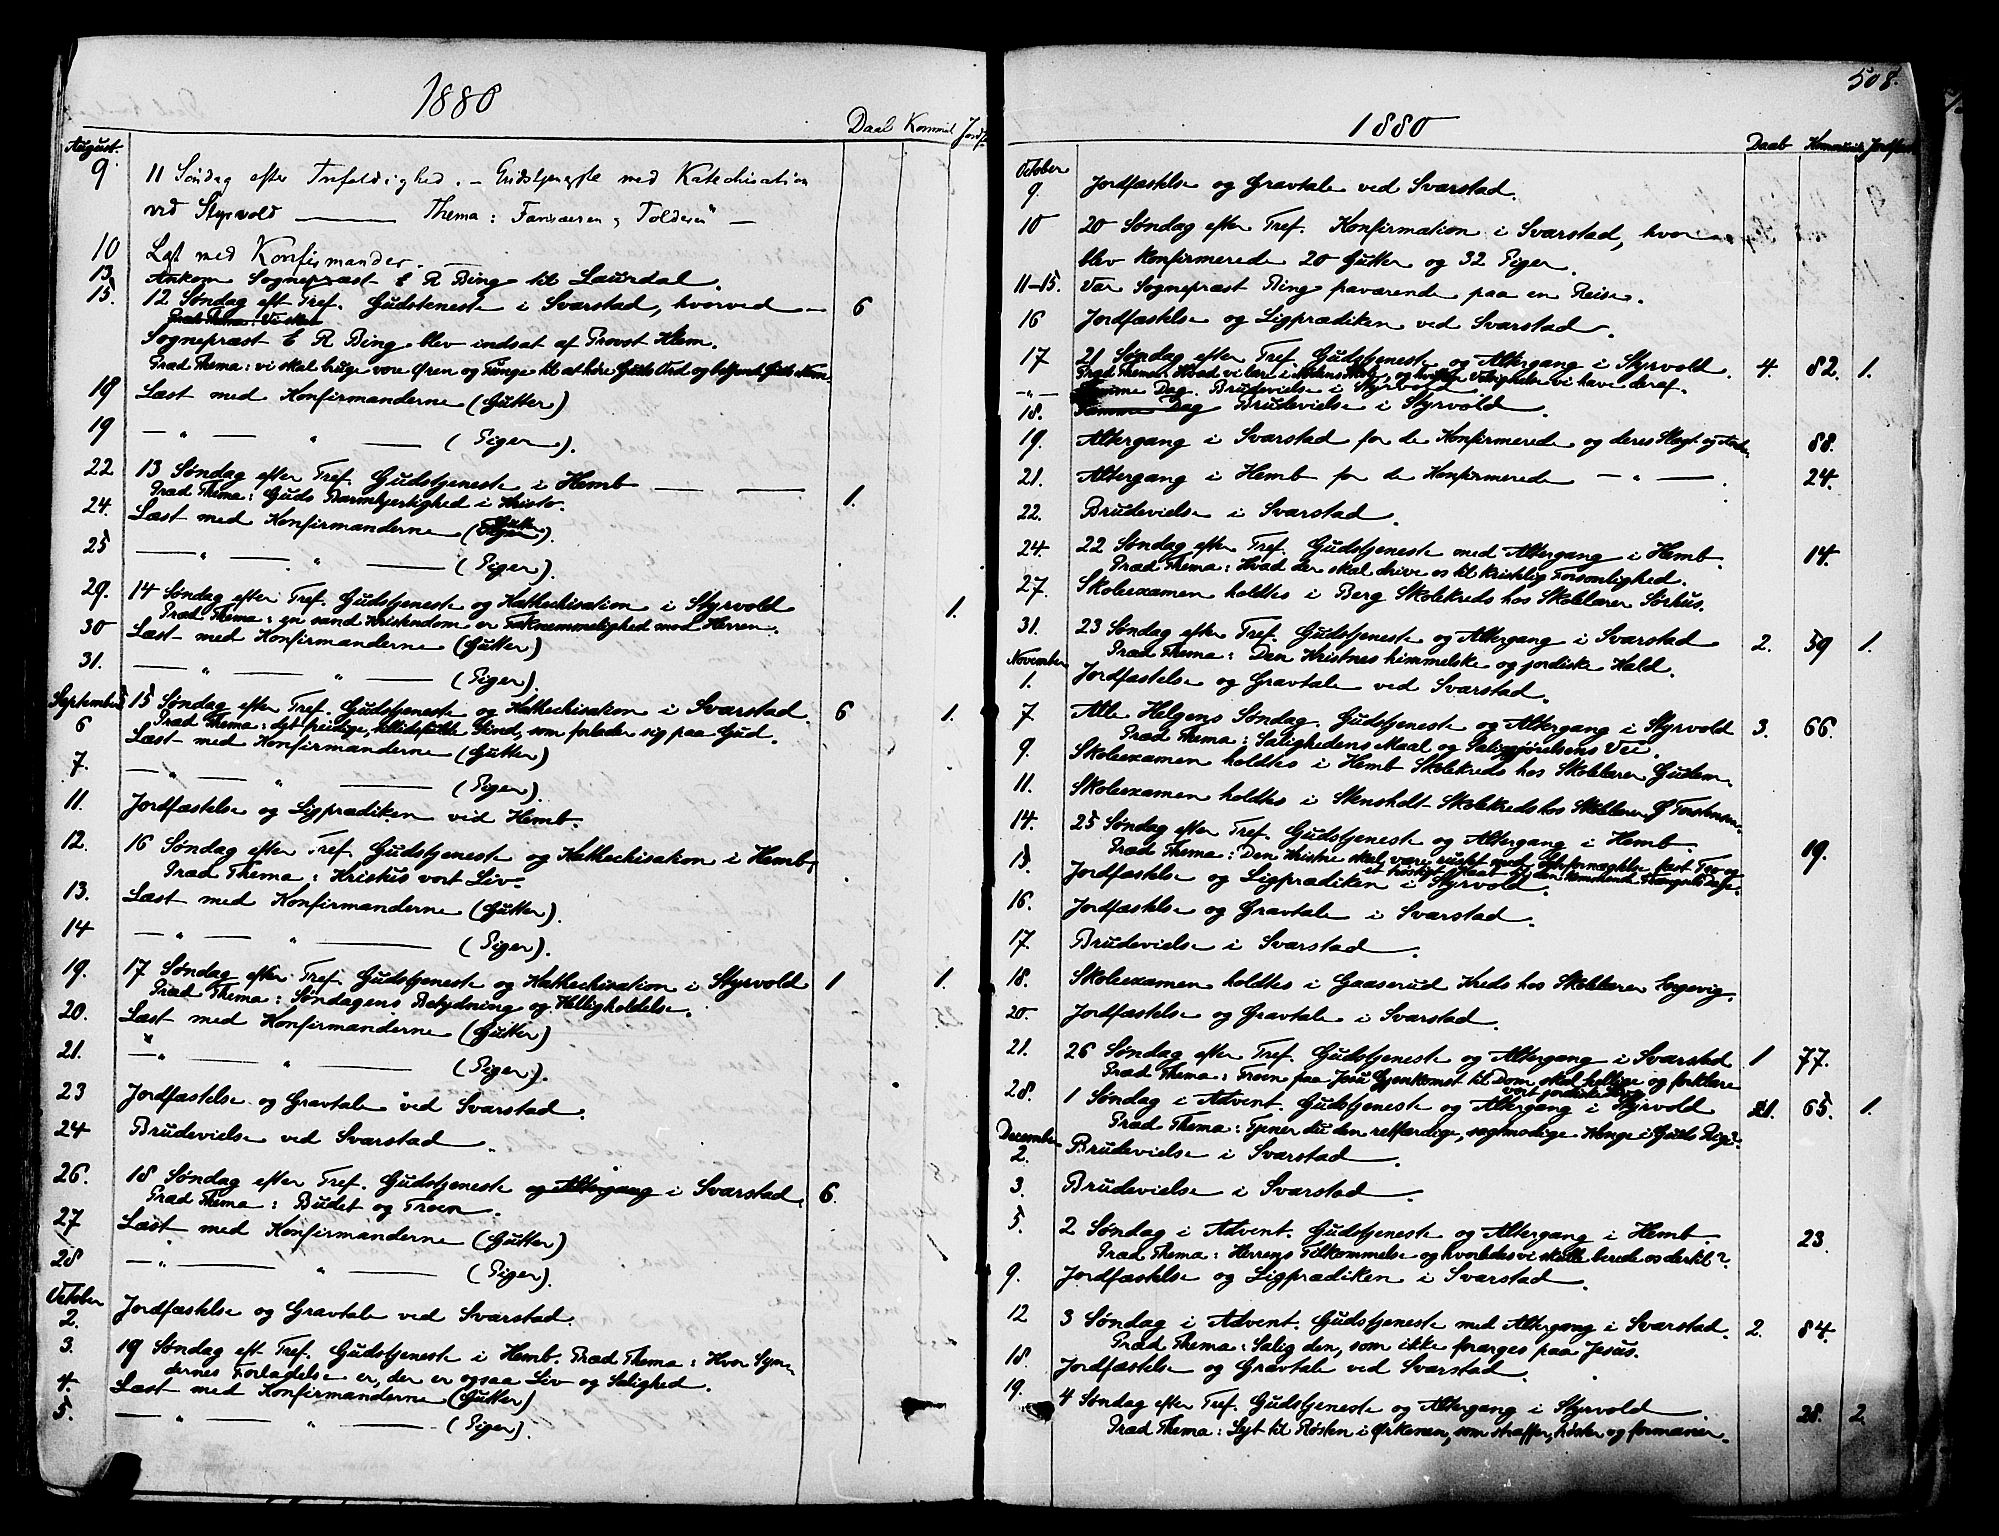 1880
Daab Kommu Jordf
August.
9 11 Søndag efter Trefoldighed. – Gudstjeneste med Katechisation
ved Styrvold ——— Thema: Farisæeren og Tolderen" —
10 Læst med Konfirmander. —
13. Ankom Sognepræst E R Bing til Laurdal.
15. 12 Søndag eft Tref. Gudsteneste i Svarstad, hvorved — 6
Præd Thema: Vi skal
Sognepræst E R Bing blev indsat af Provst Klem.
Præd Thema: vi skal bruge vore Øren og Tunge til at høre Guds Ord og bekjende Guds Navn.
18 Læst med Konfirmanderne (Gutter)
19 — „ — „ — (Piger).
22 13 Søndag efter Tref. Gudstjeneste i Hemb — — 1.
Præd Thema: Guds Barmhjertighed i Kristo.
24. Læst med Konfirmanderne (Gutter).
25 — „ — „ — (Piger).
29. 14 Søndag efter Tref. Gudstjeneste og Kathechisation i Styrvold 1.
Præd Thema: en sand Kristendom er Taknemmelighed mod Herren.
30 Læst med Konfirmanderne (Gutter)
31. — „ — „ — (Piger).
September 15 Søndag efter Tref. Gudstjeneste og Kathechisation i Svarstad. 6 1.
Præd Thema: det freidige, tillidsfulde Sind, som forlader sig paa Gud.
6 Læst med Konfirmanderne (Gutter)
7. — „ — „ — (Piger).
11. Jordfæstelse og Ligprædiken ved Hemb.
12. 16 Søndag efter Tref Gudstjeneste og Kathechisation i Hemb,
Præd Thema: Kristus vort Liv.
13. Læst med Konfirmanderne (Gutter).
14 — „ — „ — (Piger).
19. 17 Søndag efter Tref. Gudstjeneste og Kathechisation i Styrvold 1 1.
Præd Thema: Søndagens Betydning og Helligholdelse.
20. Læst med Konfirmanderne (Gutter)
21. — „ — „ — (Piger).
23 Jordfæstelse og Gravtale ved Svarstad.
24 Brudevielse ved Svarstad.
26. 18 Søndag efter Tref. Gudstjeneste og Altergang i Svarstad, 6.
Præd Thema: Budet og Troen.
27 Læst med Konfirmanderne (Gutter)
28 — „ — „ — (Piger).
October
2. Jordfæstelse og Gravtale ved Svarstad.
3. 19 Søndag eft Tref. Gudstjeneste i Hemb. Præd Thema: Hvor Syn-
dernes Forladelse er, der er ogsaa Liv og Salighed.
4. Læst med Konfirmanderne (Gutter)
5. — „ — „ — (Piger).
508.
1880
Daab Kommunik. Jordfæst
October
9. Jordfæstelse og Gravtale ved Svarstad.
10 20 Søndag efter Tref. Konfirmation i Svarstad, hvor
blev Konfirmerede 20 Gutter og 32 Piger.
11–15. Var Sognepræst Bing fraværende paa en Reise.
16 Jordfæstelse og Ligprædiken ved Svarstad.
17 21 Søndag efter Tref. Gudstjeneste og Altergang i Styrvold. 4. 82. 1.
Præd Thema: Hvad vi lære i og hvilke Velsignelse vi have deraf.
— „ — Samme Dag. Brudevielse i Styrvold
18. Samme Dag Brudevielse i Styrvold.
19. Altergang i Svarstad for de Konfirmerede og deres Slægt og 88.
21. Altergang i Hemb for de Konfirmerede — „ —. 24.
22. Brudevielse i Svarstad.
24. 22 Søndag efter Tref. Gudstjeneste med Altergang i Hemb. 14.
Præd Thema: Hvad der skal drive os til kristelig Forsonlighed.
27. Skoleexamen holdtes i Berg Skolekreds hos Skolelærer Sørhus.
31. 23 Søndag efter Tref. Gudstjeneste og Altergang i Svarstad 2. 59 1.
Præd Thema: Den Kristnes himmelske og jordiske Kald.
November
1. Jordfæstelse og Gravtale ved Svarstad.
7 Alle Helgens Søndag. Gudstjeneste og Altergang i Styrvold 3. 66.
Præd Thema: Salighedens Maal og Saliggjørelsens Vei.
9. Skoleexamen holdtes i Hemb Skolekreds hos Skolelærer Gutlem.
11. Skoleexamen holdtes i Stensholt Skolekreds hos Skolelærer
14. 25 Søndag efter Tref. Gudstjeneste og Altergang i Hemb. 19.
Præd Thema: Den Kristne skal være rustet med Selvfornægtelse, fast Tro og
et trøstigt Haab til den kommende Trængsels Dage.
15. Jordfæstelse og Ligprædiken i Styrvold.
16. Jordfæstelse og Gravtale i Svarstad.
17. Brudevielse i Svarstad.
18. Skoleexamen holdtes i Gaaserud Kreds hos Skolelærer Engevig.
20. Jordfæstelse og Gravtale i Svarstad.
21. 26 Søndag efter Tref. Gudstjeneste og Altergang i Svarstad 1 77.
Præd Thema: Troen paa Jesu Gjenkomst til Dom skal hellige og forklare
vort jordiske Liv.
28. 1 Søndag i Advent. Gudstjeneste og Altergang i Styrvold 1. 65. 1.
Præd Thema: Tjener du den retfærdige, sagtmodige Konge i Guds Rige?
December
2. Brudevielse i Svarstad.
3. Brudevielse i Svarstad.
5. 2 Søndag i Advent. Gudstjeneste og Altergang i Hemb. 23.
Præd Thema: Herrens Tilkommelse og hvorledes vi skulle berede os dertil?
9. Jordfæstelse og Ligprædiken i Svarstad.
12 3 Søndag i Advent. Gudstjeneste med Altergang i Svarstad. 2. 84.
Præd Thema: Salig den, som ikke forarges paa Jesus.
18. Jordfæstelse og Gravtale ved Svarstad.
19. 4 Søndag efter Tref. Gudstjeneste og Altergang i Styrvold. 28. 2.
Præd Thema: Lyt til Røsten i Ørkenen, som straffer, trøster og formaner.